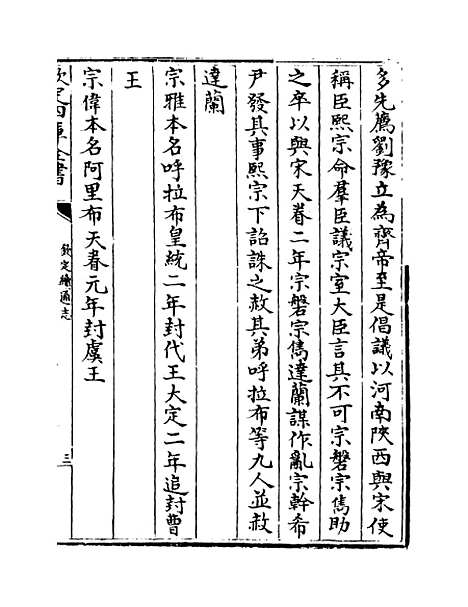 多先薦劉豫立為齊帝至是倡議以河南陝西與宋使
稱臣熙宗命羣臣議宗室大臣言其不可宗磐宗雋助
之卒以與宋天眷二年宗磐宗雋達蘭謀作亂宗幹希
尹發其事熙宗下詔誅之赦其弟呼拉布等九人並赦
達蘭
宗雅本名呼拉布皇統二年封代王大定二年追封曹
王
宗偉本名阿里布天眷元年封虞王
欽定四庫全書
欽定續通志
三